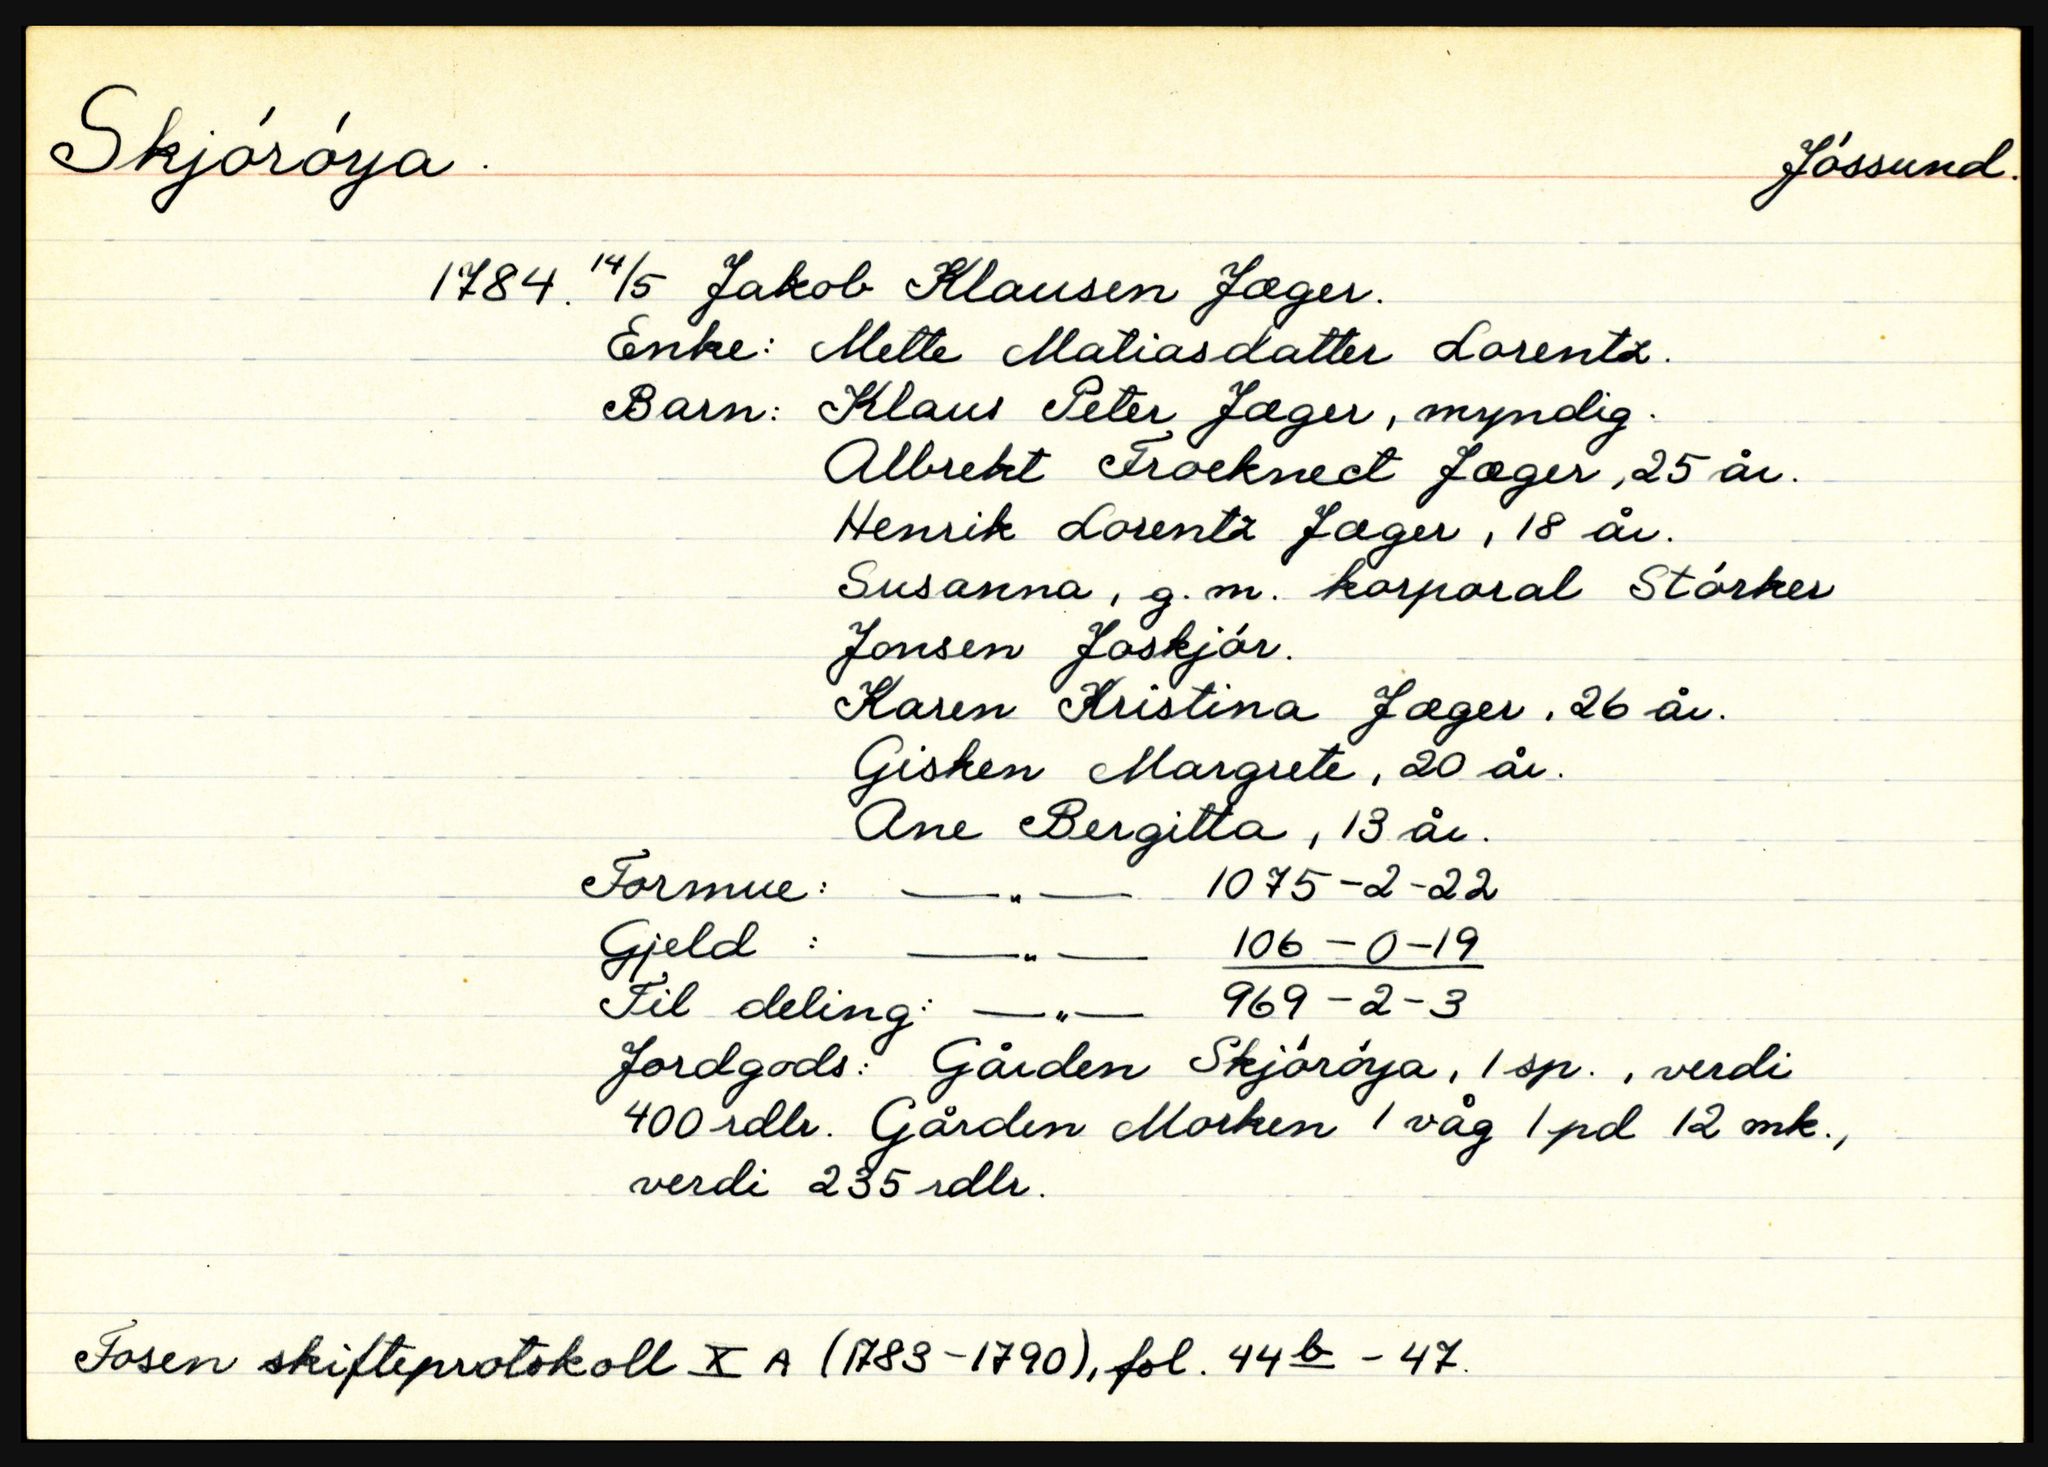 Skjóróya.
Jóssund.
1784. 14/5 Jakob Klausen Jæger.
Enke: Mette Matiasdatter Lorentz.
Barn: Klaus Peter Jæger, myndig.
Albrekt Frocknect Jæger, 25 år.
Henrik Lorentz Jæger, 18 år.
Susanna, g. m. korporal Stórker
Jonsen Joskjór.
Karen Kristina Jæger, 26 år.
Gisken Margrete, 20 år.
Ane Bergitta, 13 år.
Formue: —"— 1075-2-22
Gjeld : —"— 106-0-19
Til deling: —"— 969-2-3
Jordgods: Gården Skjóróya, 1 sp., verdi
400 rdlr. Gården Morken 1 våg 1 pd 12 mk.,
verdi 235 rdlr.
Fosen skifteprotokoll X A (1783-1790), fol. 44b - 47.